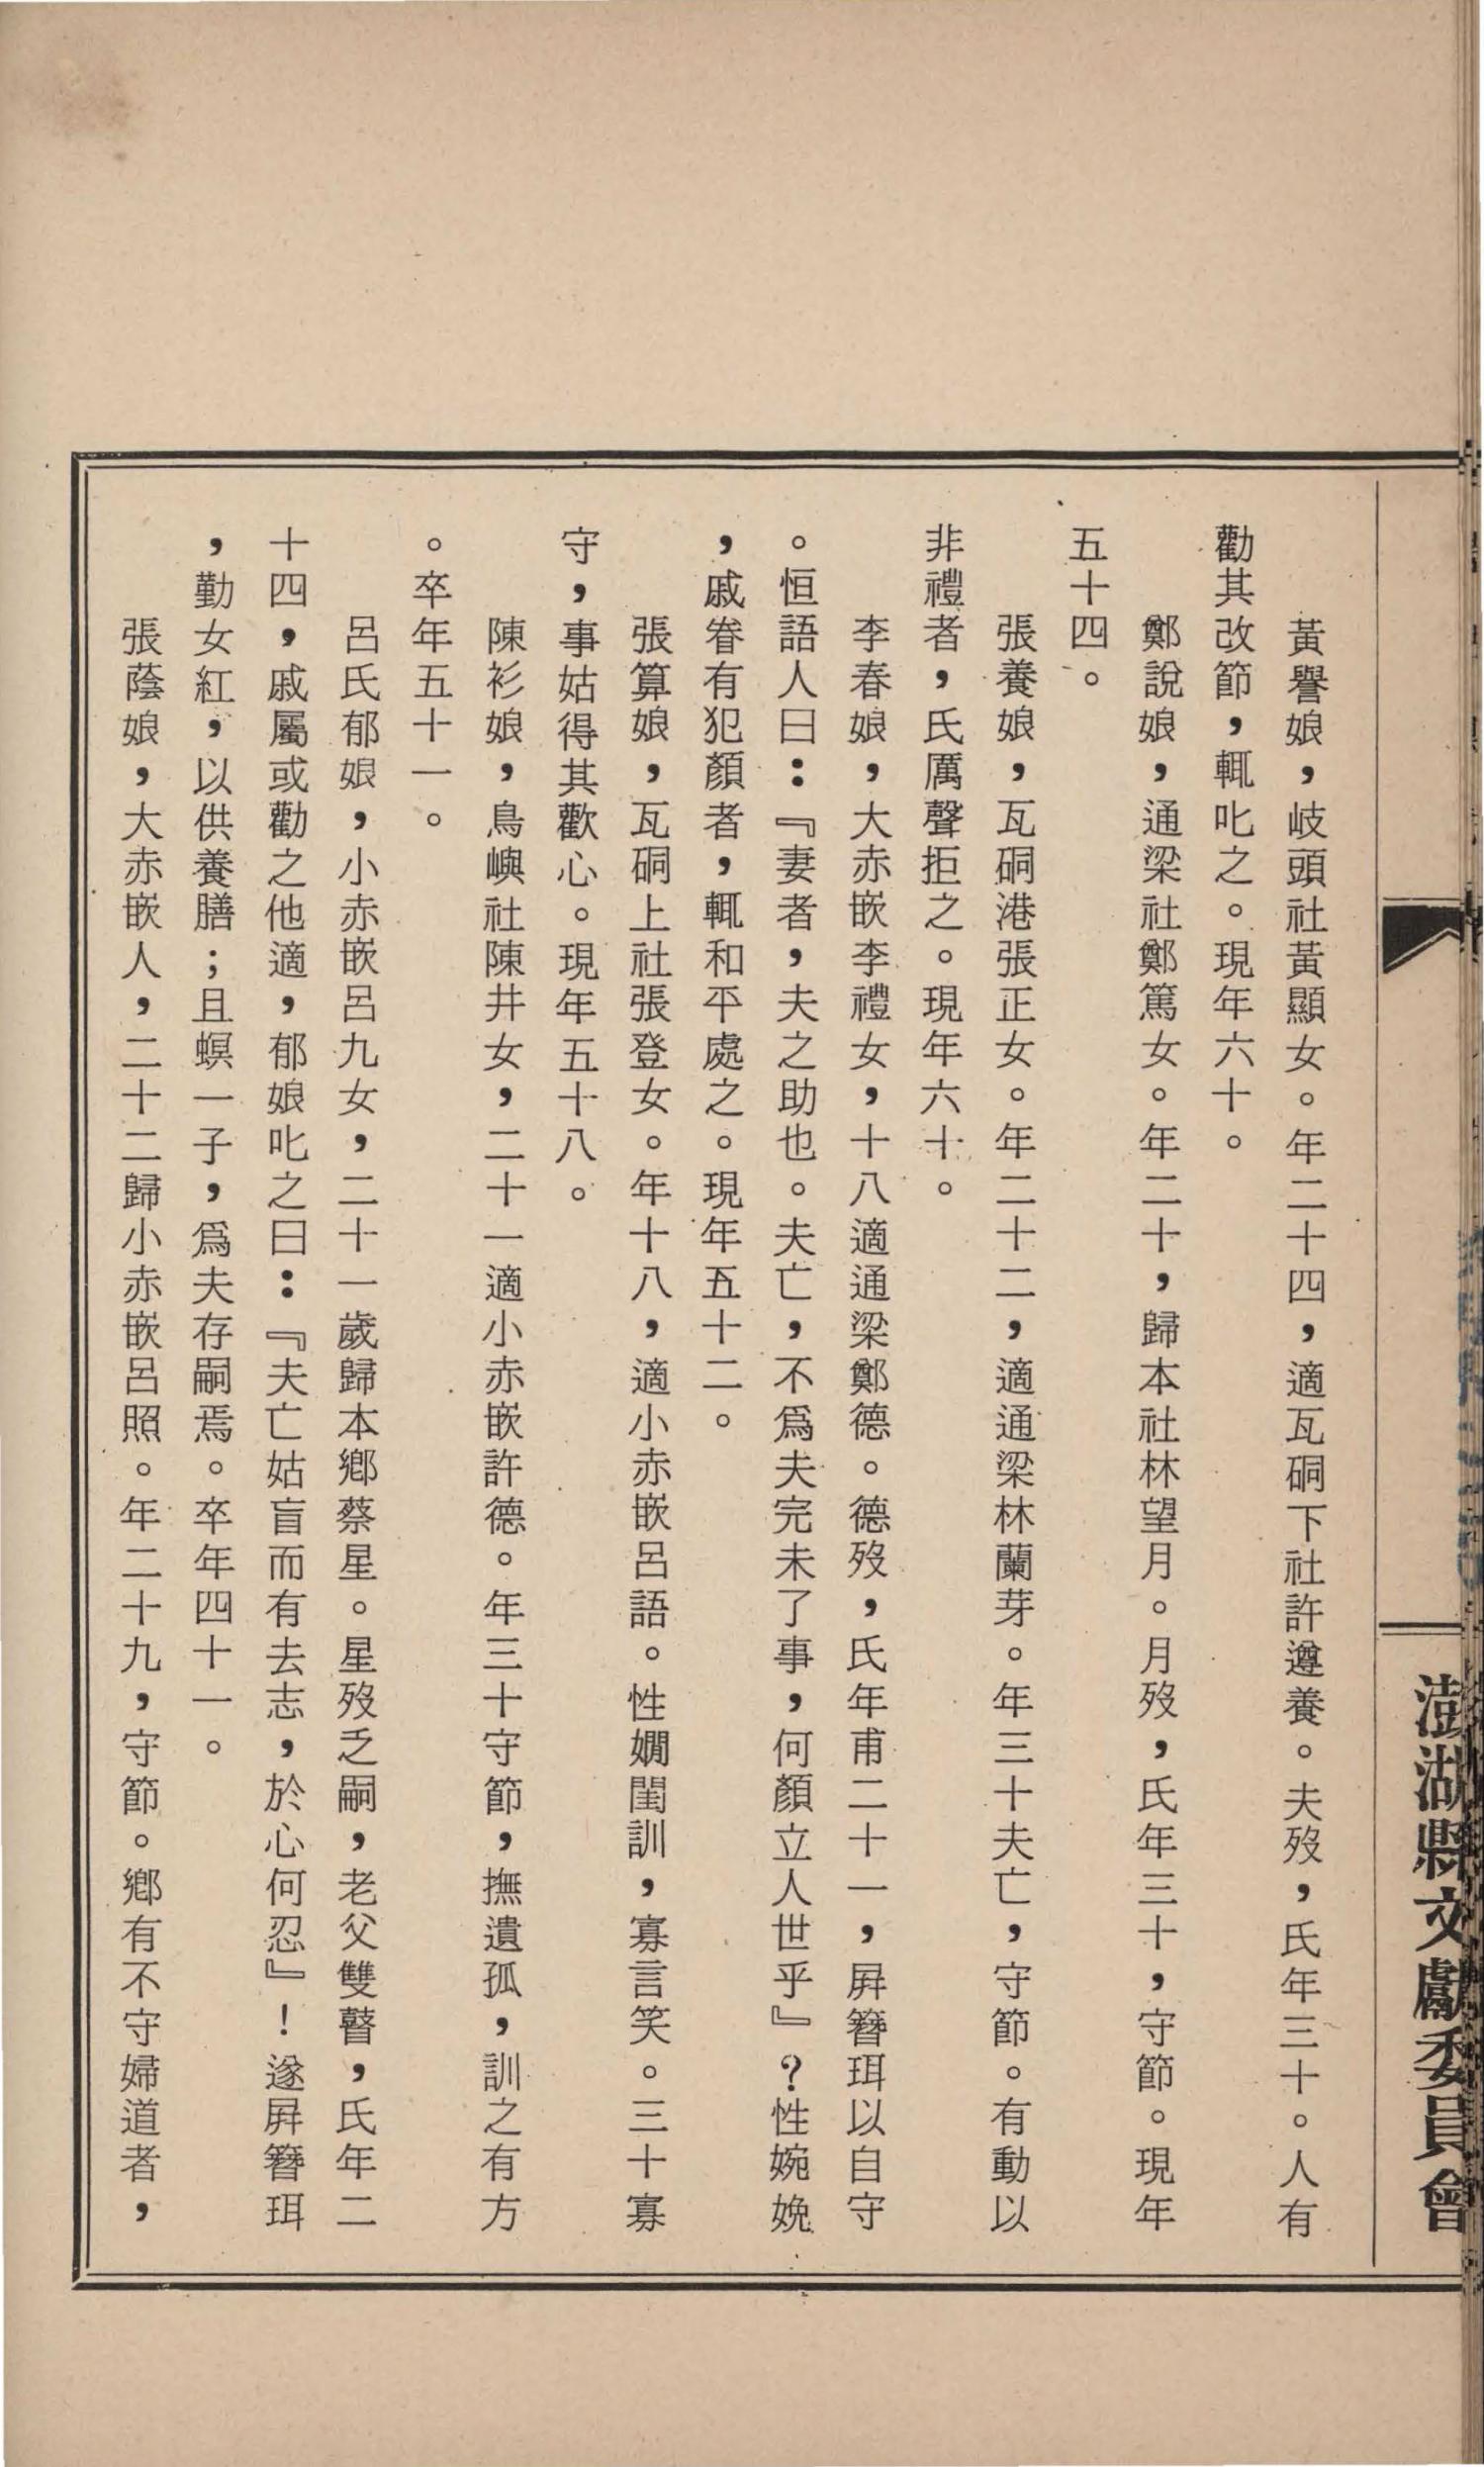 黃譽娘，岐頭社黃顯女。年二十四，適瓦硐下社許遵養。夫歿，氏年三十。人有
勸其改節，輒叱之。現年六十。
鄭說娘，通梁社鄭篤女。年二十，歸本社林望月。月歿，氏年三十，守節。現年
五十四。
張養娘，瓦硐港張正女。年二十二，適通梁林蘭芽。年三十夫亡，守節。有動以
非禮者，氏厲聲拒之。現年六十。
李春娘，大赤嵌李禮女，十八適通梁鄭德。德歿，氏年甫二十一，屏簪珥以自守
。恒語人曰：『妻者，夫之助也。夫亡，不爲夫完未了事，何顏立人世乎』？性婉娩
，戚眷有犯顏者，輒和平處之。現年五十二。
張算娘，瓦硐上社張登女。年十八，適小赤嵌呂語。性嫻閨訓，寡言笑。三十寡
守，事姑得其歡心。現年五十八。
陳衫娘，鳥嶼社陳井女，二十一適小赤嵌許德。年三十守節，撫遺孤，訓之有方
。卒年五十一。
呂氏郁娘，小赤嵌呂九女，二十一歲歸本鄉蔡星。星歿乏嗣，老父雙瞽，氏年二
十四，戚屬或勸之他適，郁娘叱之曰：『夫亡姑盲而有去志，於心何忍』！遂屏簪珥
，勤女紅，以供養膳；且螟一子，爲夫存嗣焉。卒年四十一。
張蔭娘，大赤嵌人，二十二歸小赤嵌呂照。年二十九，守節。鄉有不守婦道者，
澎湖縣文獻委員會